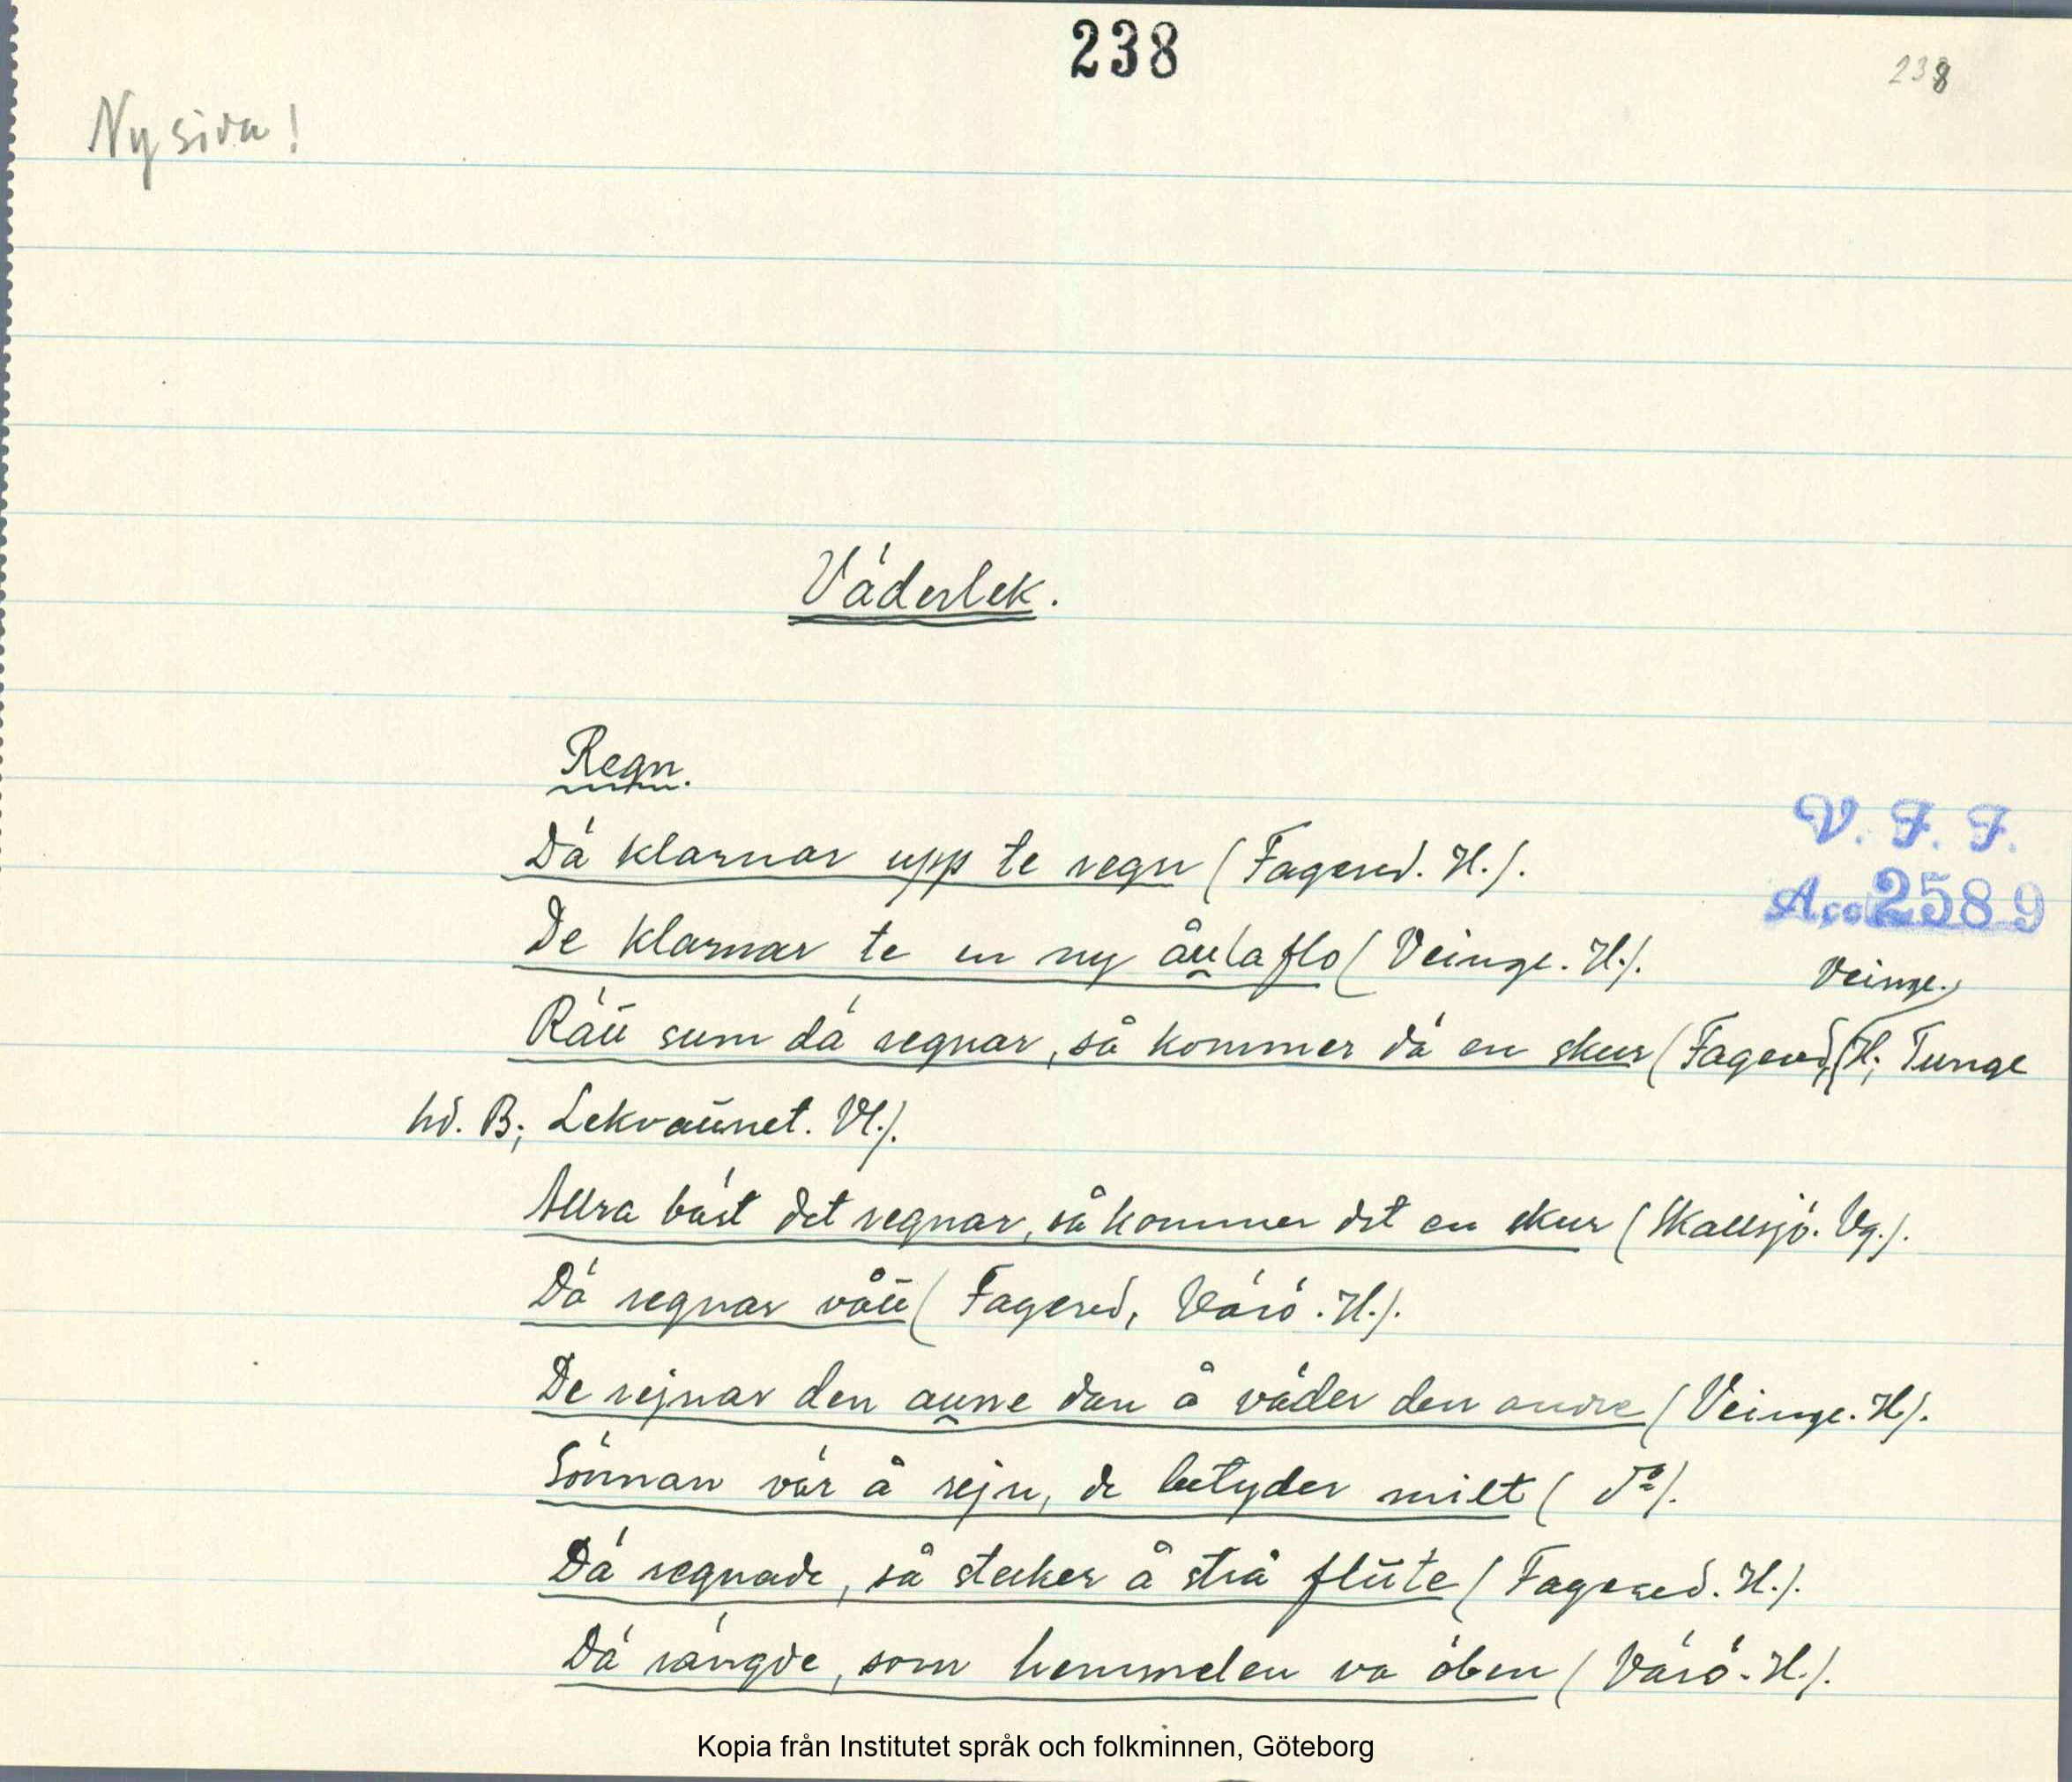 238
238
Ny sida!
Väderlek.
Regn.
Dä klarnar upp te regn (Fagered. H.).
V. F. F.
Acc 2589
De klarnar te en ny åu̯laflo (Veinge. H.).
Veinge.
Räū sum dä regnar, så kommer dä en skur (Fagered, H; Tunge
hd. B; Lekvattnet. Vl.).
Allra bäst det regnar, så kommer det en skur (Skallsjö. Vg.).
Dä regnar våū (Fagered, Värö. H.).
De rejnar den au̯ne dan å väder den andre (Veinge. H.).
Sönnan vär å rejn, de betyder milt (do).
Dä regnade, så stecker å strå flūte (Fagered. H.).
Dä rängde, som hemmelen va öben (Värö. H.).
Kopia från Institutet språk och folkminnen, Göteborg